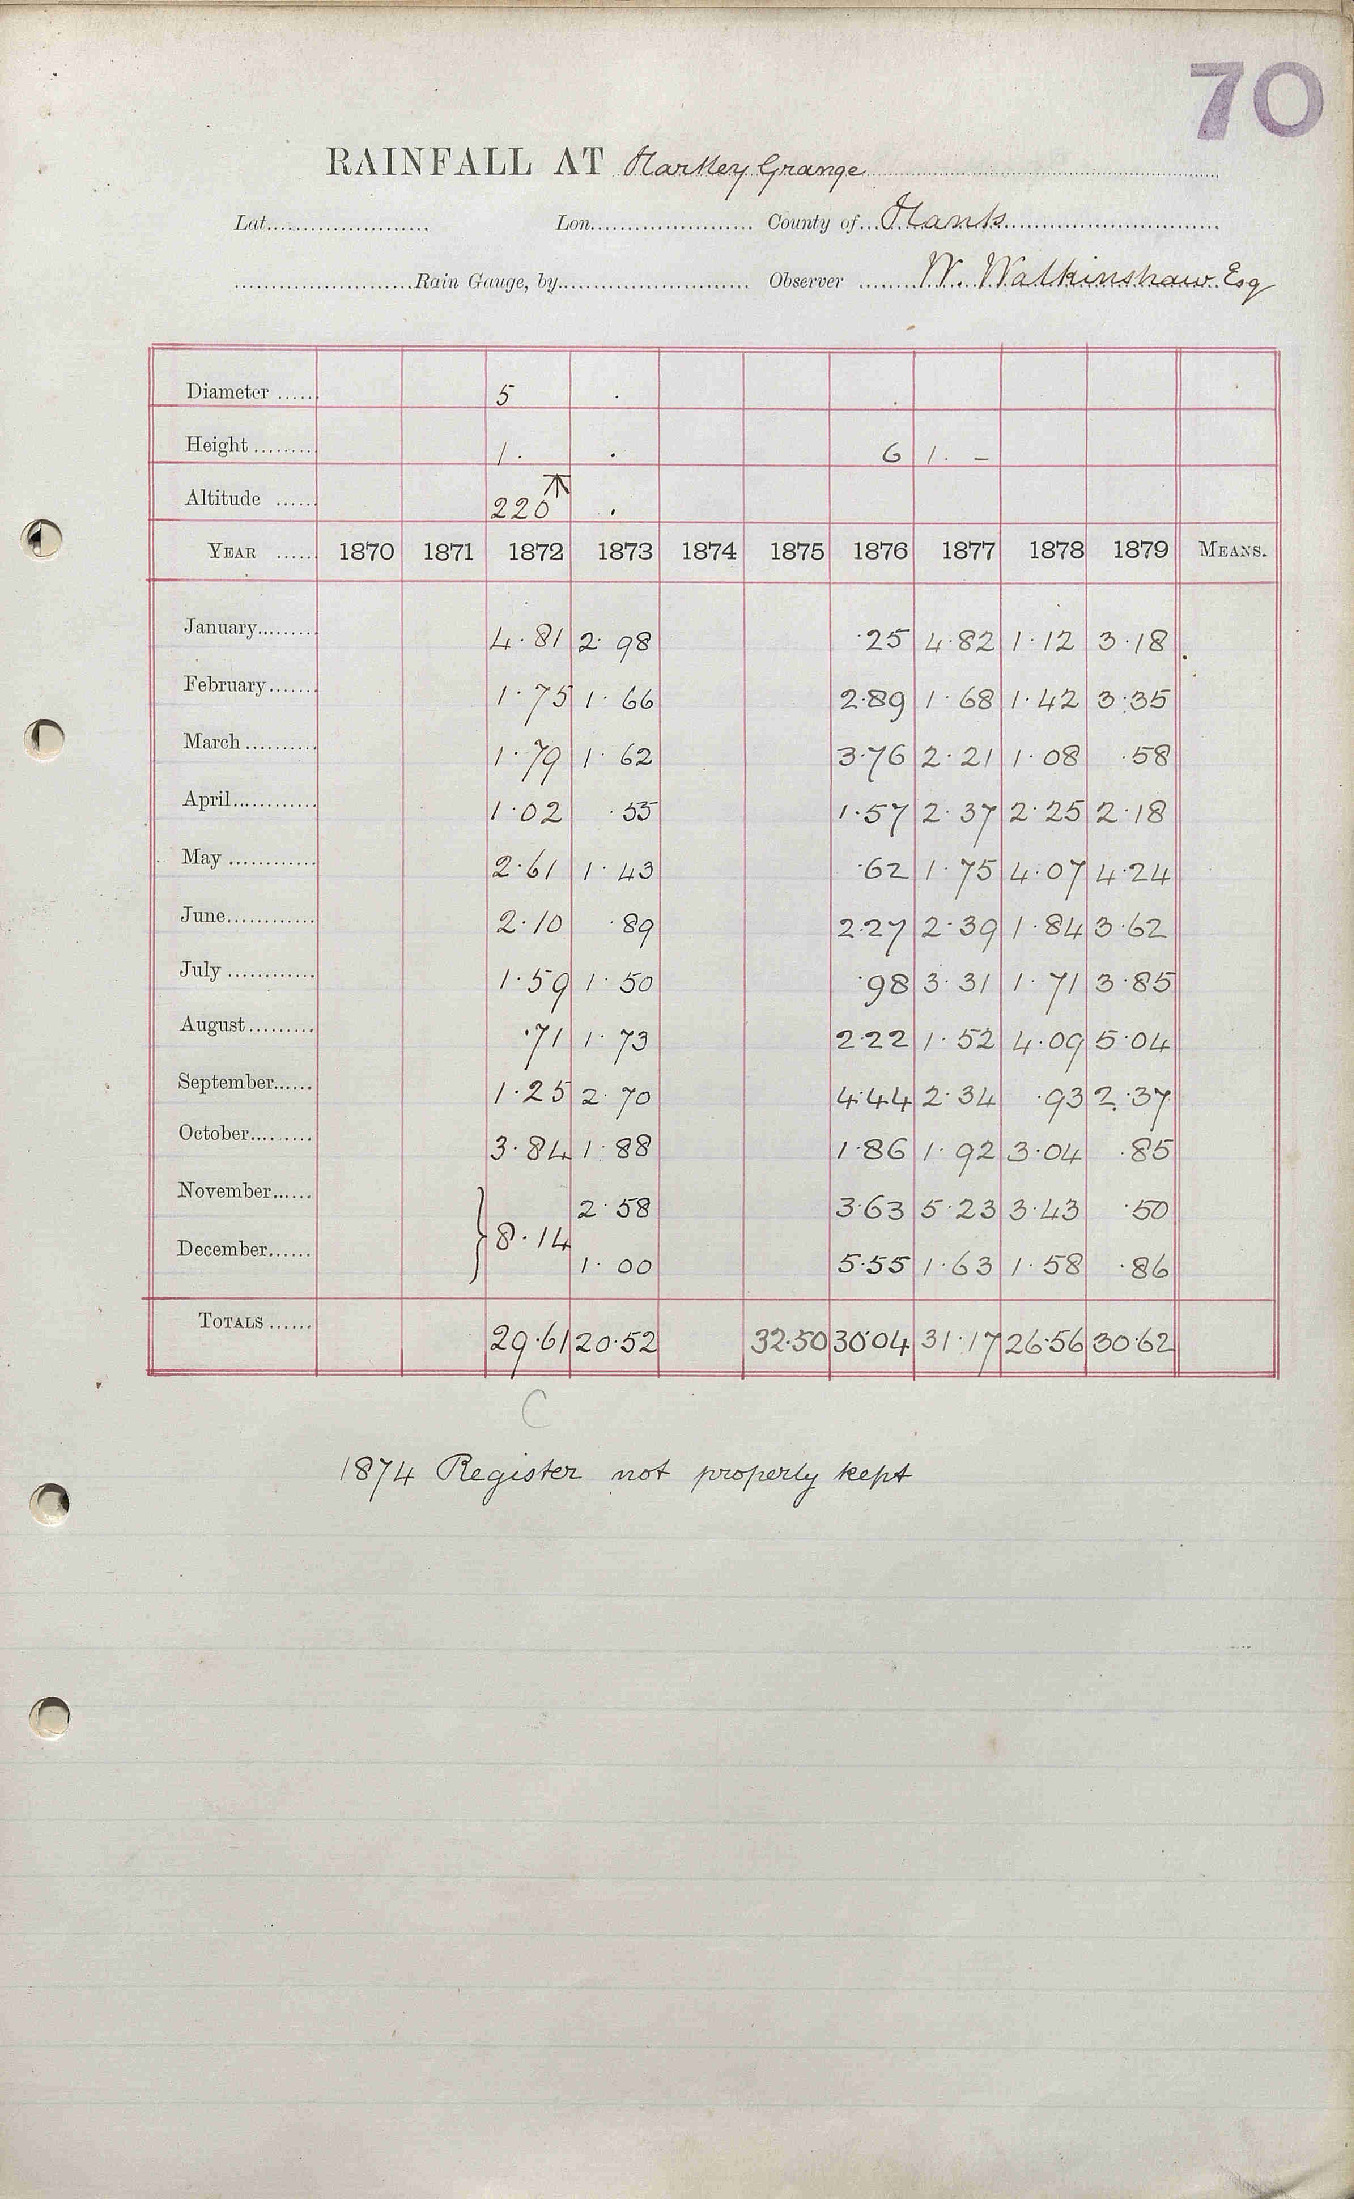 70
RAINFALL AT Hartley Grange
Lat. Lon. County of Hants
Rain Gauge, by Observer W. Walkinshaw Esq
Diameter 5 .
Height 1. . 6 1. –
Altitude 220 .
YEAR 1870 1871 1872 1873 1874 1875 1876 1877 1878 1879 MEANS.
January 4.81 2.98 .25 4.82 1.12 3.18
February 1.75 1.66 2.89 1.68 1.42 3.35
March 1.79 1.62 3.76 2.21 1.08 .58
April 1.02 .55 1.57 2.37 2.25 2.18
May 2.61 1.43 .62 1.75 4.07 4.24
June 2.10 .89 2.27 2.39 1.84 3.62
July 1.59 1.50 .98 3.31 1.71 3.85
August .71 1.73 2.22 1.52 4.09 5.04
September 1.25 2.70 4.44 2.34 .93 2.37
October 3.84 1.88 1.86 1.92 3.04 .85
November } 2.58 3.63 5.23 3.43 .50
December 8.14 1.00 5.55 1.63 1.58 .86
TOTALS 29.61 20.52 32.50 30.04 31.17 26.56 30.62
C
1874 Register not properly kept